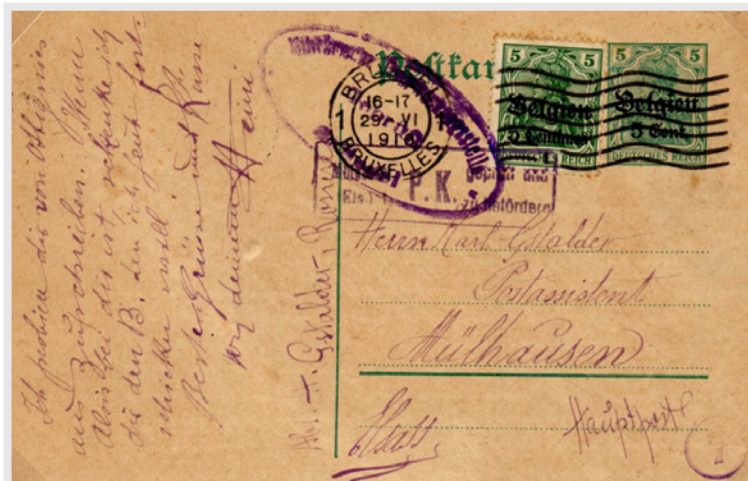 Postkar
5
5
Belgien
5 Centimes
DEUTSCHES REICH
5
5
Belgien
5 Cent.
DEUTSCHES REICH
BRUSSEL
1 16-17 1
29. VI
1916
BRUXELLES
P. K.
geprüft und
zu befördern
Herrn Karl Gstalder
Postassistent
Mülhausen
Elsass
Hauptpost
1
Abs. H. Gstalder,
Ich probiere dir von
aus zuzuschreiben. Wenn
Alois bei dir ist, schenke ich
du den B. den ich heute fort-
schicken will.
Beste Grüsse und Küsse
von deinem Heini